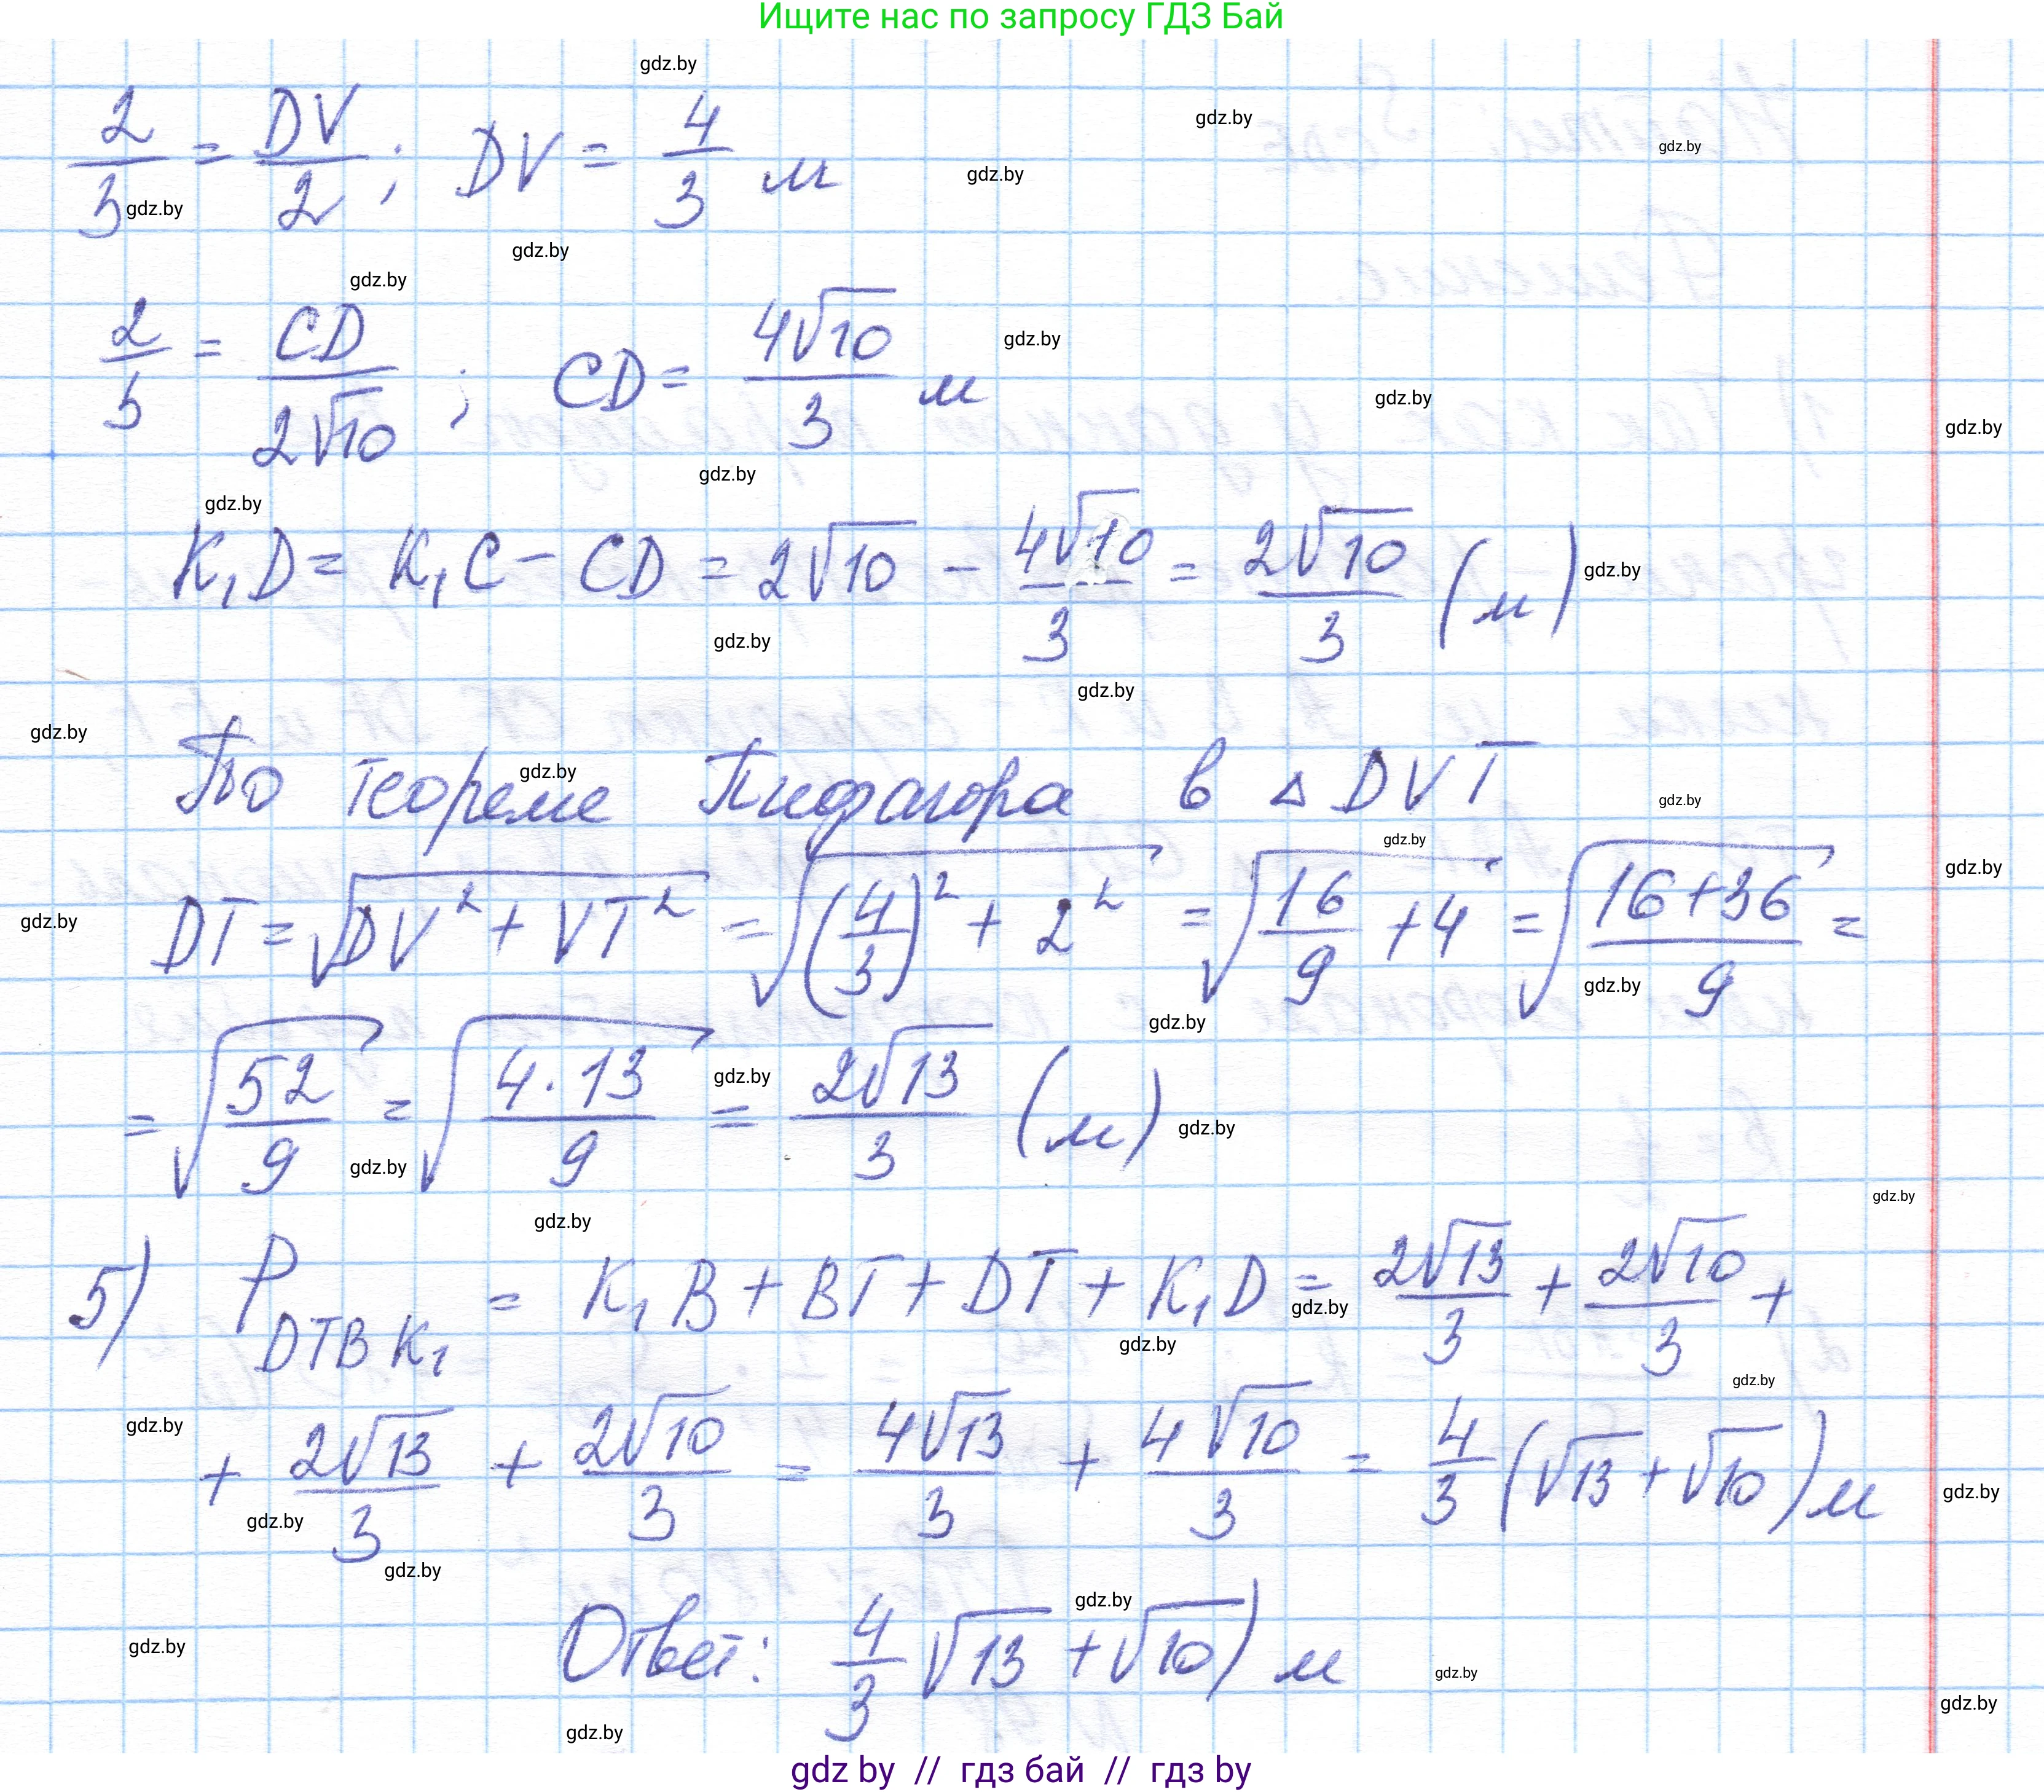 Ищите нас по запросу ГДЗ Бай
2/3 = DV/2; DV = 4/3 м
2/3 = CD/2√10; CD = 4√10/3 м
K₁D = K₁C - CD = 2√10 - 4√10/3 = 2√10/3 (м)
По теореме Пифагора в △ DVT
DT = √(DV² + VT²) = √((4/3)² + 2²) = √(16/9 + 4) = √((16+36)/9) =
= √(52/9) = √(4·13/9) = 2√13/3 (м)
5) P DTBK₁ = K₁B + BT + DT + K₁D = 2√13/3 + 2√10/3 +
+ 2√13/3 + 2√10/3 = 4√13/3 + 4√10/3 = 4/3 (√13 + √10) м
Ответ: 4/3 √13 + √10) м
gdz by // гдз бай // гдз by